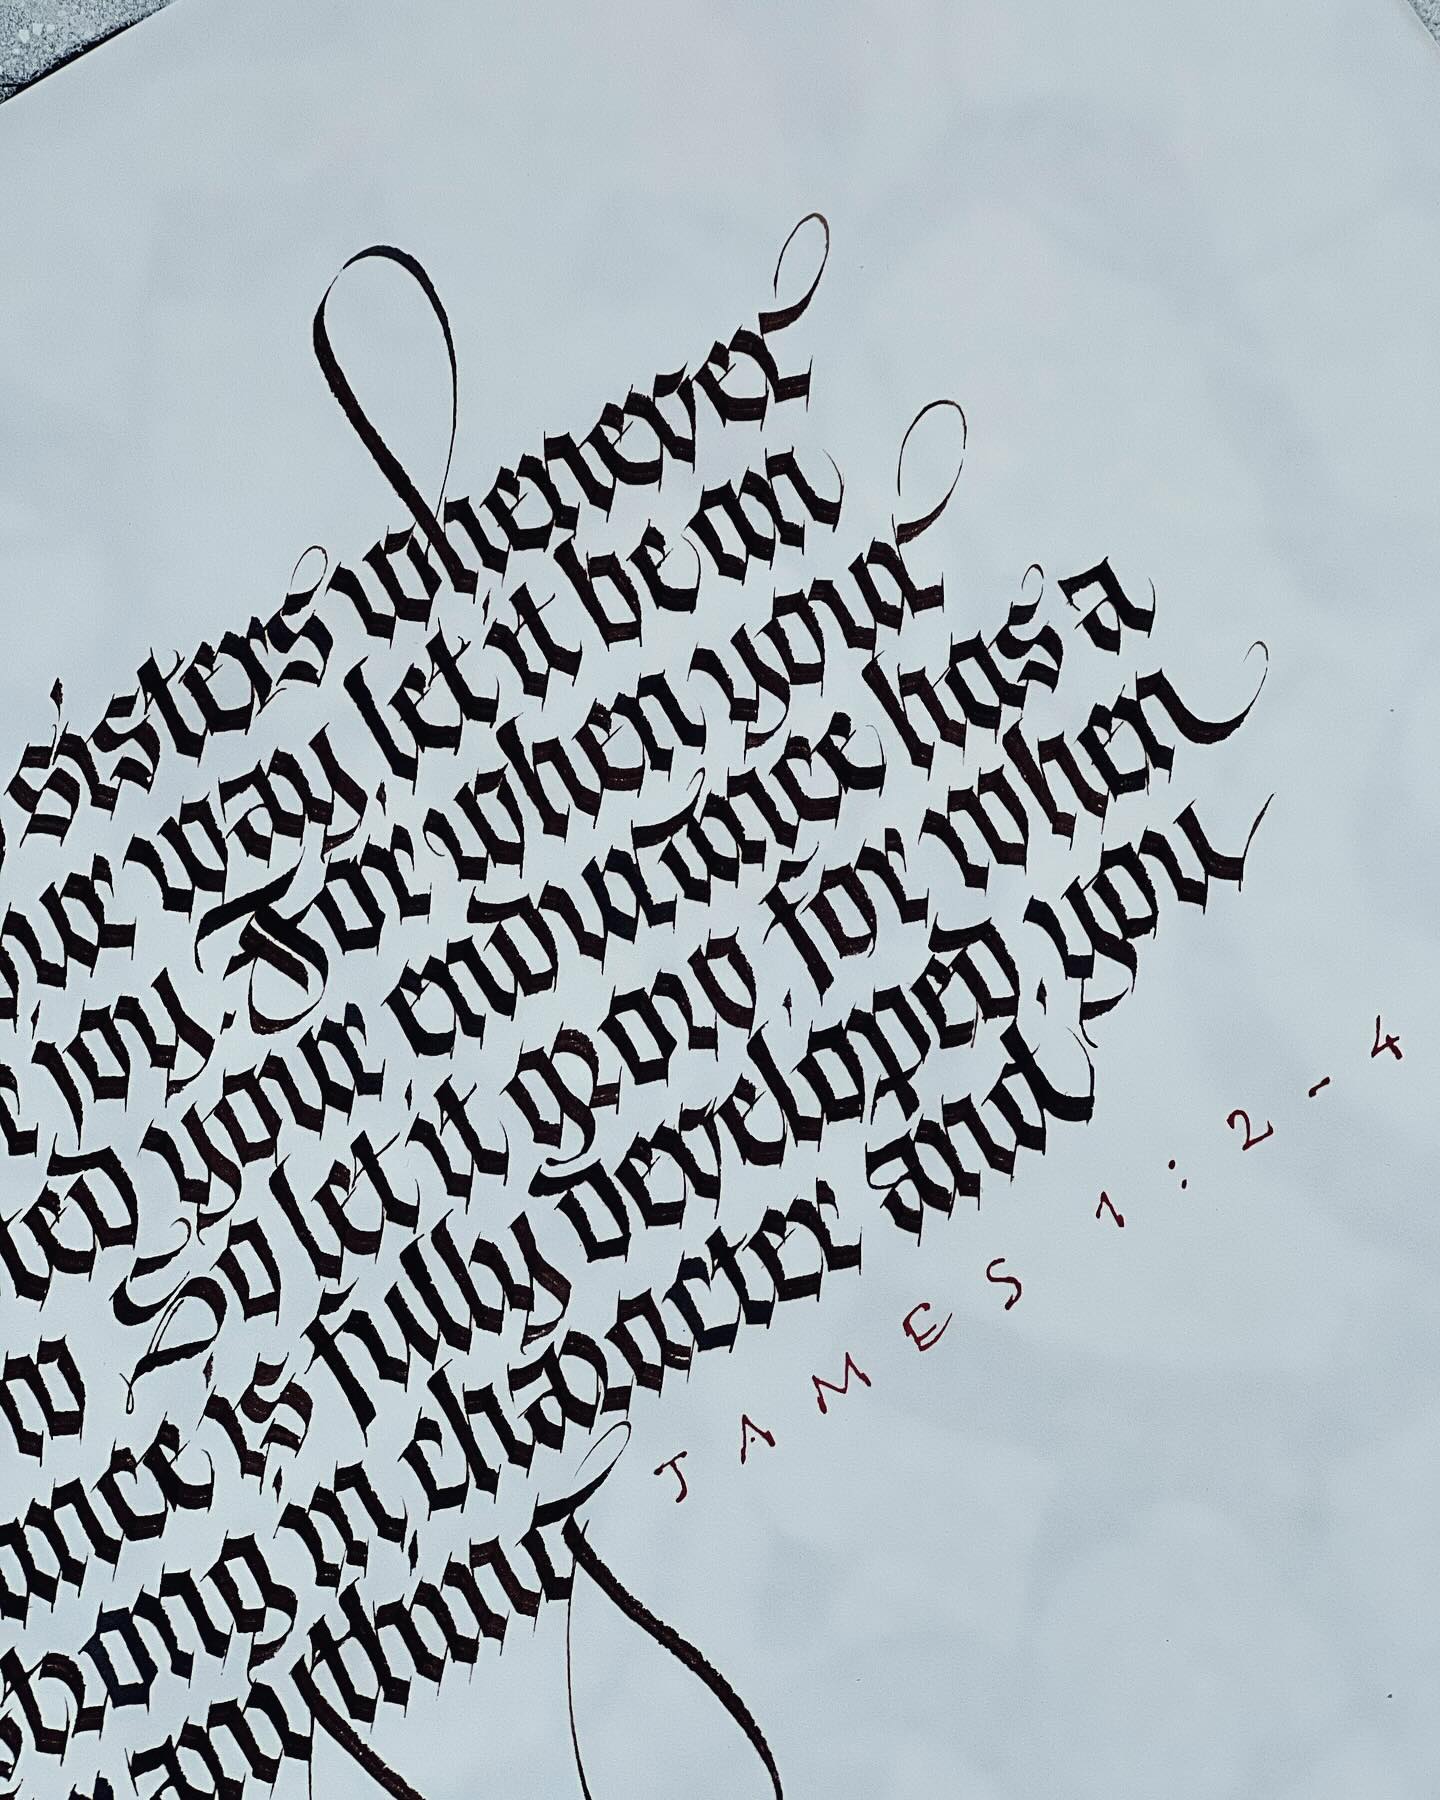 sisters whenever
our way, let it be an
joy. For when your
ted your endurance has a
So let it grow, for when
ance is fully developed, you
strong in character and
anything
JAMES 1:2-4